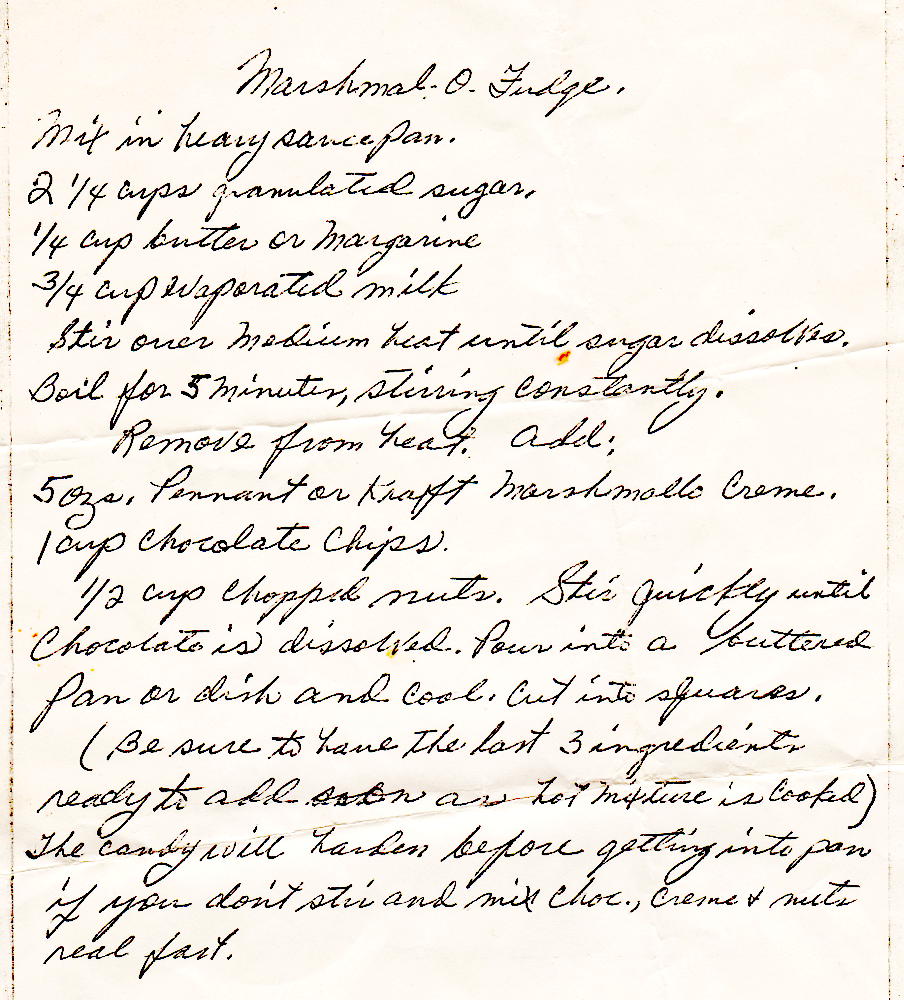 Marshmal-O-Fudge.
Mix in heavy saucepan.
2 1/4 cups granulated sugar.
1/4 cup butter or Margarine
3/4 cup evaporated milk
Stir over Medium heat until sugar dissolves.
Boil for 5 Minutes, stirring constantly.
Remove from heat. Add:
5 ozs. Pennant or Krafft Marshmallo Creme.
1 cup Chocolate Chips.
1/2 cup chopped nuts. Stir quickly until
Chocolate is dissolved. Pour into a buttered
pan or dish and cool. Cut into squares.
(Be sure to have the last 3 ingredients
ready to add soon as hot mixture is cooked)
The candy will harden before getting into pan
if you don't stir and mix choc., creme & nuts
real fast.